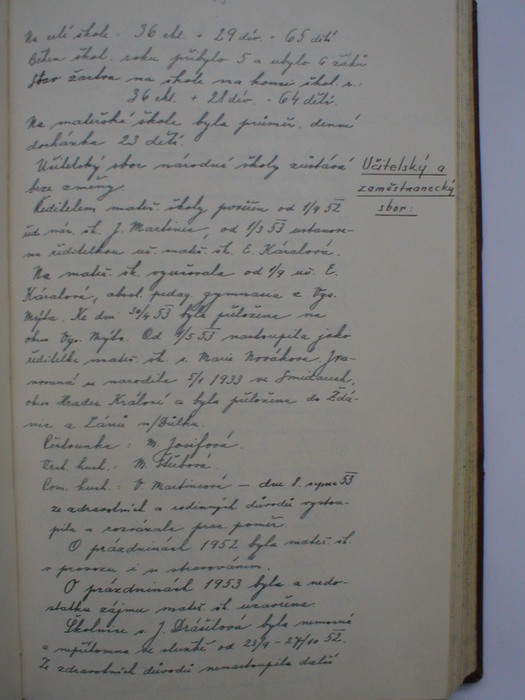 Na celé škole - 36 chl. + 29 dív. = 65 dětí
Během škol. roku přibylo 5 a ubylo 6 žáků
Stav žactva na škole na konci škol. r.:
36 chl. + 28 dív. = 64 dětí.
Na mateřské škole byla průměr. denní
docházka 23 dětí.
Učitelský sbor národní školy zůstává
beze změny.
Učitelský a
zaměstnanecký
sbor:
Ředitelem mateř. školy pověřen od 1/9 52
řed. nár. šk. J. Martinec, od 1/3 53 ustanove-
na ředitelkou uč. mateř. šk. E. Káralová.
Na mateř. šk. vyučovala od 1/9 uč. E.
Káralová, absol. pedag. gymnasia z Vys.
Mýta. Ke dni 30/4 53 byla přeložena na
okres Vys. Mýto. Od 1/5 53 nastoupila jako
ředitelka mateř. šk. s. Marie Nováková. Jme-
novaná se narodila 5/1 1933 ve
okres Hradec Králové a byla přeložena do Ždá-
nic z Lánů n/Důlku.
Pěstounka: M. Josifová.
kuch.: M.
kuch.: V. Martincová - dne 1. srpna 53
ze zdravotních a rodinných důvodů vystou-
pila a rozvázala prac. poměr.
O prázdninách 1952 byla mateř. šk.
v provozu i se stravováním.
O prázdninách 1953 byla z nedo-
statku zájmu mateř. šk. uzavřena.
Školnice s. J. Drášilová byla nemocná
a nepřítomna ve službě od 23/9 - 27/10 52.
Ze zdravotních důvodů nenastoupila další